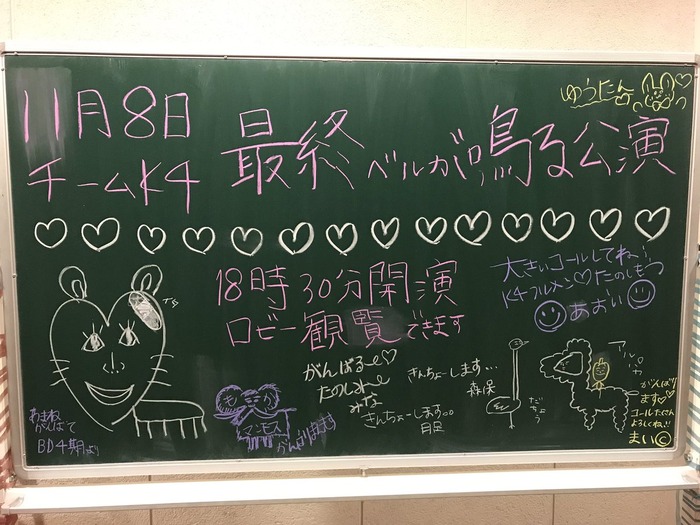 11月8日
チームK4
最終ベルが鳴る公演
ゆうたん
18時30分開演
ロビー観覧できます
大きいコールしてね!!
K4フルメン♡たのしもっ
あおい
がんばる〜♡
たのしみ〜
みな
きんちょーします…
森保
きんちょーします。。
月足
だちょう
アルパカ
がんばり
ます♡
コールたくさん
よろしくね!!
まい©
もか
マンモス
がんばります
あまね
がんばて
BD4期より